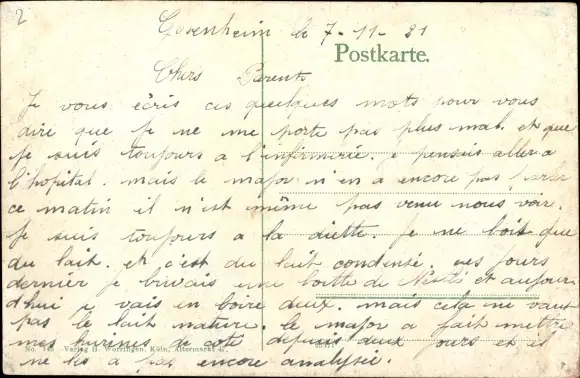 2
Gosenheim le 7-11-21
Postkarte.
Chers Parents
Je vous écris ces quelques mots pour vous
dire que je ne me porte pas plus mal. et que
je suis toujours a l'infirmerie. je pensais aller a
l'hopital. mais le major n'en a encore pas parler
ce matin il n'est même pas venu nous voir.
Je suis toujours a la diette. Je ne bois que
du lait. et c'est du lait condensé. ces jours
dernier je buvais une boitte de Nestlé et aujour
d'hui je vais en boire deux. mais cela ne vaut
pas le lait nature. le major a fait mettre
mes hurines de coté depuis deux jours et il
No. 148 Verlag H. Worringen, Köln, Altermarkt 47.
ne les a pas encore analysée.